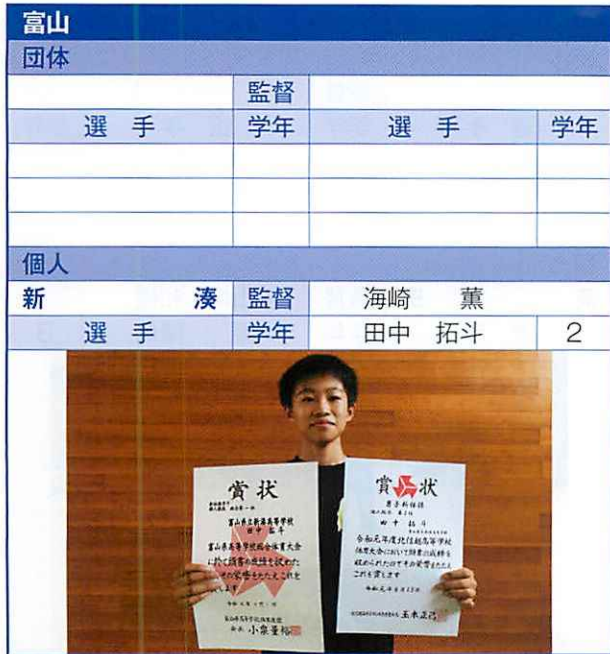 富山
団体
監督
選 手 学年 選 手 学年
個人
新 湊 監督 海崎 薫
選 手 学年 田中 拓斗 2
賞状
富山県立新湊高等学校
田中 拓斗
富山県高等学校総合体育大会
に於て頭書の成績を収めた
その栄誉をたたえこれを
会長 小泉量裕
賞状
男子新体操
田中 拓斗
令和元年度北信越高等学校
体育大会において頭書の成績を
収められたのでその栄誉をたたえ
これを賞します
令和元年6月15日
玉木正己